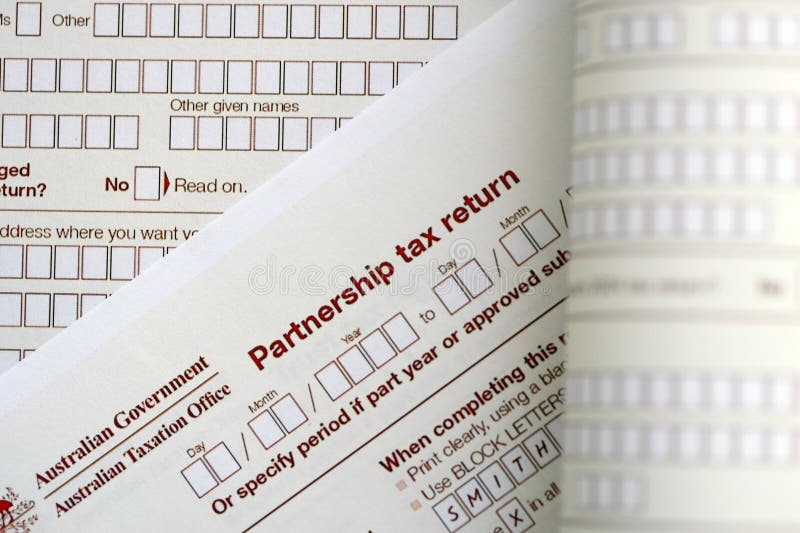 Ms
Other
Other given names
No
Read on.
address where you want
Partnership tax return
Day
Month
Year
to
Day
Month
Or specify period if part year or approved
Australian Government
Australian Taxation Office
When completing this
Print clearly, using a
Use BLOCK LETTERS
SMITH
X in all
dreamstime